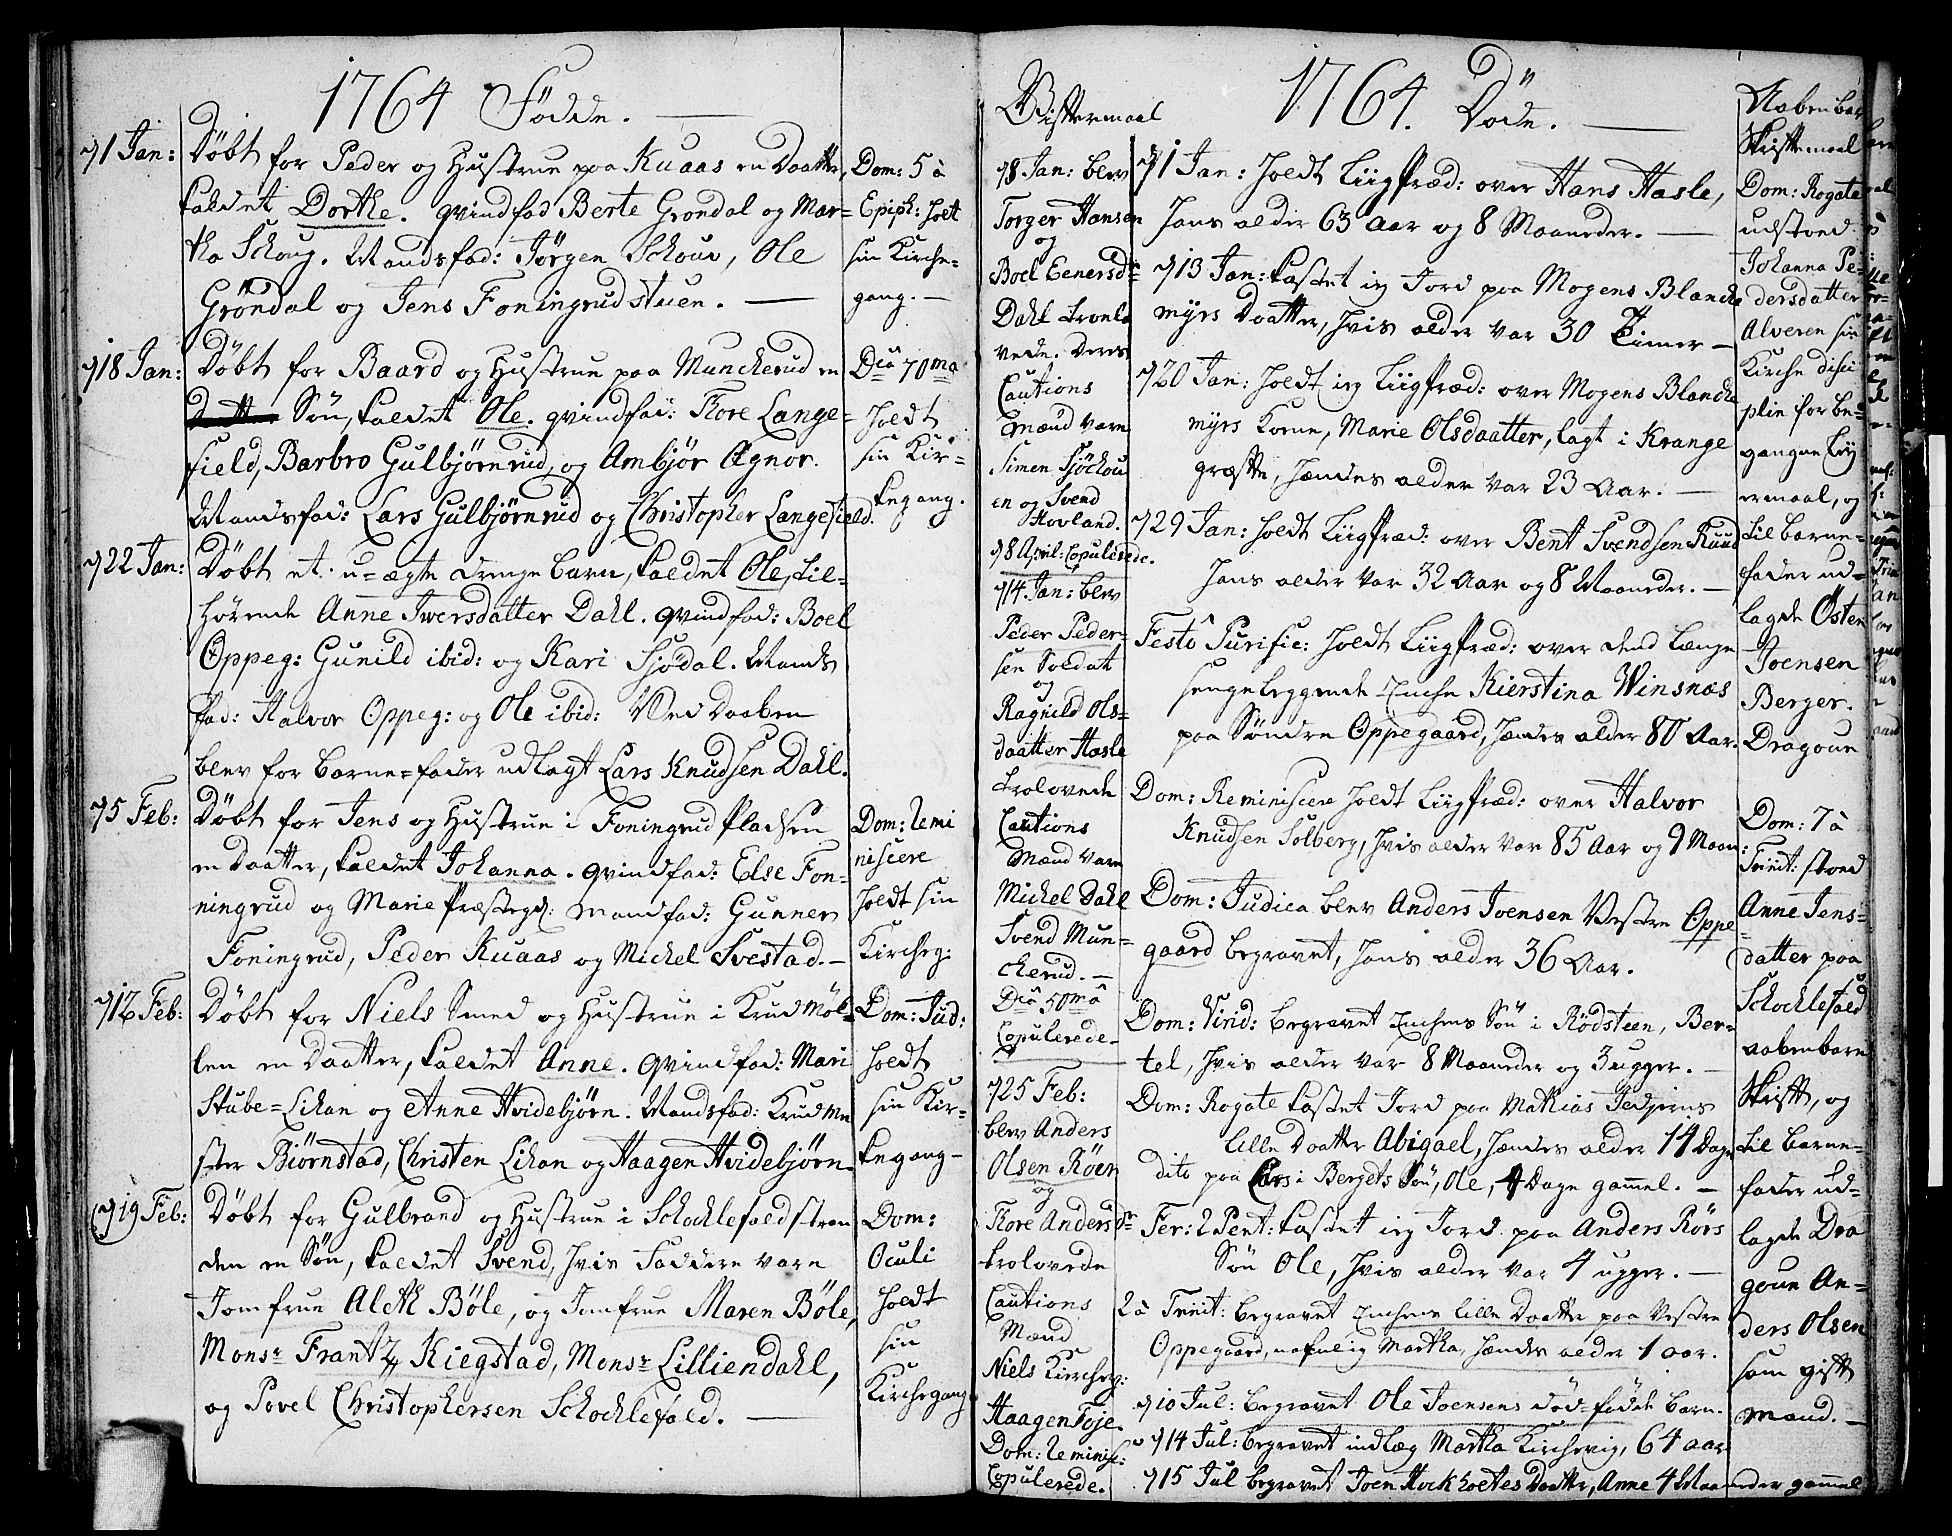 1764 Födde.
d 1 Jan: Døbt for Peder og Hustrue paa Kuaas en Daatter,
kaldet Dorthe. Qvindfad Berte Grøndal og Mar=
tha Schoug. Mandsfad: Jørgen Schouv, Ole
Grøndal og Jens Foningrudstuen.
Dom: 5 à
Epiph: holt
sin Kirche=
gang.
d 18 Jan: Døbt for Baard og Hustrue paa Munckerud en
Søn, kaldet Ole. Qvindfad: Flore Lange=
field, Barbro Gulbjørnrud, og Ambjør Ægnor.
Mandsfad: Lars Gulbjørnrud og Christopher Langefield.
Dca 70ma
holdt
sin Kir=
kegang.
d 22 Jan: Døbt et u=ægte drenge barn, kaldet Ole, til=
hørende Anne Iwersdatter Dahl. Qvindfad: Boel
Oppeg: Gunild ibid: og Kari Sjødal. Mands
fad: Halvor Oppeg: og Ole ibid: Ved Daaben
blev for barne=fader udlagt Lars Knudsen Dahl.
d 5 Feb: Døbt for Jens og Hustrue i Foningrud Pladsen
en Daatter, kaldet Johanna. Qvindfad: Else Fon=
ningrud og Marie Præstegd: Mandfad: Gunner
Foningrud, Peder Kuaas og Michel Svestad.
Dom: Remi
niscere
holdt sin
Kircheg:
d 12 Feb: Døbt for Niels Smed og Hustrue i Krudmøl=
len en Daatter, kaldet Anne. Qvindfad: Mari
Stube=Lihan og Anne Hvidebjørn. Mandsfad: Krudme
ster Biörnstad, Christen Lihan og Haagen Hvidebjørn
Dom: Jud:
holdt
sin Kir=
kegang
d 19 Feb: Døbt for Gulbrand og Hustrue i Schocklefaldstran
den en Søn, kaldet Svend, hvis Faddere vare
Jomfrue Aleth Böle, og Jomfrue Maren Böle,
Monsr Frantz Kiegstad, Monsr Lilliendahl,
og Povel Christophersen Schocklefald.
Dom:
Oculi
holdt
sin
Kirchegang
Gifftermaal
d 8 Jan: blev
Torger Hansen
og
Boel Eenersdr
Dahl trolo
vede. Deres
Cautions
Mænd vare
Simen Sjöchou
en og Svend
Hovland.
d 8 April: Copulerede.
d 14 Jan: blev
Peder Peder=
sen Soldat
og
Ragnild Ols=
daatter Hasle
trolovede
Cautions
Mænd vare
Michel Dahl
Svend Mun=
cherud.
Dca 50ma
Copulerede
d 25 Feb:
blev Anders
Olsen Röer
og
Flore Andersdr
trolovede
Cautions
Mænd
Niels Kircheg:
Haagen Toje
Dom: Reminisc:
Copulerede.
1764. Døde.
d 1 Jan: holdt Liigpræd: over Hans Hasle,
hans alder 63 Aar og 8 Maaneder.
d 13 Jan: kastet ieg Jord paa Mogens Blancke
myrs Daatter, hvis alder var 30 Timer
d 20 Jan: holdt ieg Liigpræd: over Mogens Blancke
myrs Kone, Marie Olsdaatter, lagt i Krange
græfte, hendes alder var 23 Aar.
d 29 Jan: holdt Liigpræd: over Bent Svendsen Ruud
hans alder var 32 Aar og 8 Maaneder.
Festô Purific: holdt Liigpræd: over dend længe
sengeliggende Enche Kierstina Winsnæs
paa Søndre Oppegaard, hendes alder 80 Aar.
Dom: Reminiscere holdt Liigpræd: over Halvor
Knudsen Solberg, hvis alder var 85 Aar og 9 Maan:
Dom: Judica blev Anders Joensen Vestre Oppe=
gaard begravet, hans alder 36 Aar.
Dom: Virid: begravet Enchens Søn i Rödsteen, Ber=
tel, hvis alder var 8 Maaneder og 3 ugger.
Dom: Rogate kastet Jord paa Mathias
lille Daatter Abigael, hendes alder 14 Dage
dito paa Lars i Bergets Søn, Ole, 4 Dage gamel.
Fer: 2 Pent: kastet ieg Jord paa Anders Rörs
Søn Ole, hvis alder var 4 ugger.
2 à Trinit: begravet Enchens lille Daatter paa Vestre
Oppegaard, nafnlig Martha, hendes alder 1 aar.
d 10 Jul: begravet Ole Joensens död=födde barn.
d 14 Jul: begravet indlæg Martha Kirchevig, 64 aar
d 15 Jul begravet Joen Daatter, Anne 4 Maaneder gamel
Aabenbar
Skriftemaal
Dom: Rogate
udstoed
Johanna Pe=
dersdatter
Alveren sin
Kirche disci
plin for be=
gangne Ley
ermaal, og
til barne=
fader ud=
lagde Østen
Joensen
Berger.
Dragoun
Dom: 7 à
Trinit: stoed
Anne Jens=
datter paa
Schocklefald
aabenbare
Skrift, og
til barne=
fader ud=
lagde Dra
goun An=
ders Olsen
som gift
Mand.